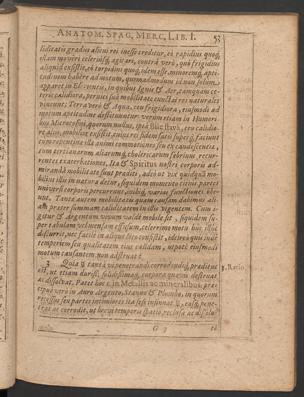 ANATOM. SPAG. MERC. LIB. I. 53
liditatis gradus alicui rei inesse creditur, et rapidius quoq;
etiam moveri celeriusq; agi: at, contrà verò, quò frigidius
aliquid exsistit, et torpidius quoq; idem esse, minoremq; aptitudinem
habere ad motum, quemadmodum id non solum
apparet in Elementis, in quibus Ignis & Aër, tanquam caeteris
calidiora, pernici sua mobilitate cunctas res naturales
vincunt; Terra verò & Aqua, ceu frigidiora, ejusmodi ad
motum aptitudine destituuntur: verum etiam in Humoribus
Microcosmi, quorum nullus, ipsâ Bile flavâ, ceu calidiore
alio, mobilior exsistit, cujus rei fidem satis superq; faciunt
cum repentina illa animi commotiones seu excandescentia,
tum tertianarum aliarumq; cholericarum febrium recurrentes
exacerbationes. Ita & Spiritus nostri corporis admirandâ
mobilitate sunt praediti, adeò ut vix quidquam mobilius
illis in natura detur, siquidem momento citius partes
universi corporis percurrunt, in ijsq; varias functiones obeunt.
Tanta autem mobilitatis quam causam dabimus aliam
praeter summam caliditatem illis urgentem. Cum igitur
& Argentum vivum valdè mobile sit, siquidem super
tabulam volvendam effusum, celerrimo motu huc illuc
discurrit, nec facilè in aliquo loco consistit, ideireo quin inde
temperiem seu qualitatem ejus calidam, utpote ejusmodi
motum causantem non abstrueat.
3 Quia & tantâ vi penetrandi corrodendiq; praeditum 3. Ratio.
est, ut etiam durissima solidissimaq; corpora quaevis destruat
ac dissolvat. Patet hoc in Metallis ac mineralibus, praecipuè
verò in Auro, Argento, Stanno & Plumbo, in quorum
recessus seu partes intimiores ita sese insinuat, easq; penetrat
ac corrodit, ut brevi temporis spatio, reclusa ac dissolu-
G 3 ta